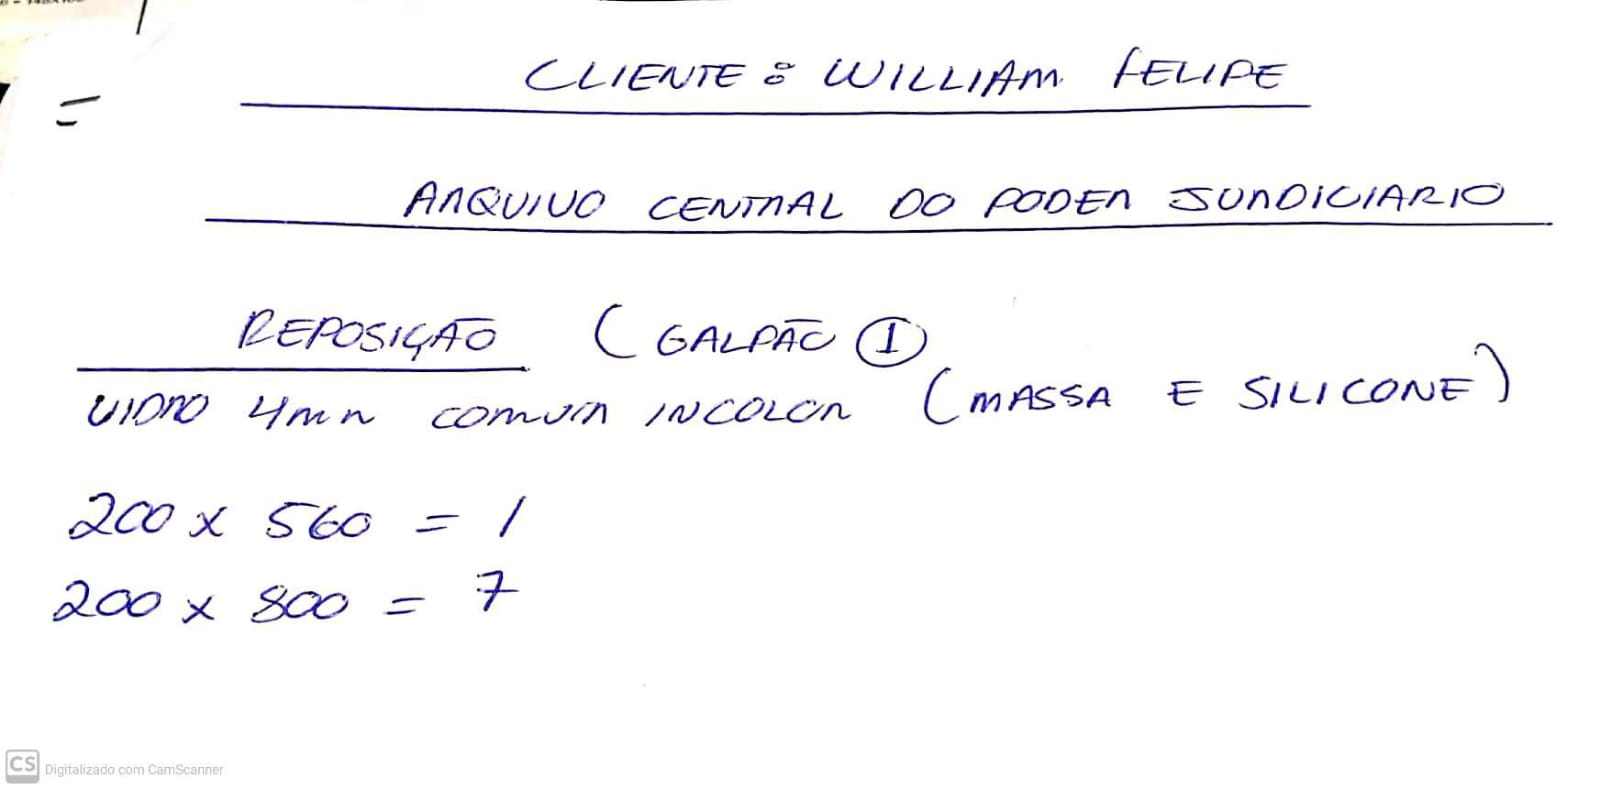 CLIENTE: WILLIAM FELIPE
ARQUIVO CENTRAL DO PODER JURDICIARIO
REPOSIÇÃO (GALPÃO 1
VIDRO 4mm COMUM INCOLOR (MASSA E SILICONE)
200 x 560 = 1
200 x 800 = 7
CS Digitalizado com CamScanner